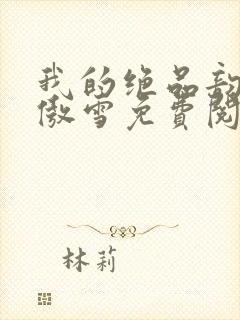 我的绝品
傲雪免費閱
林莉